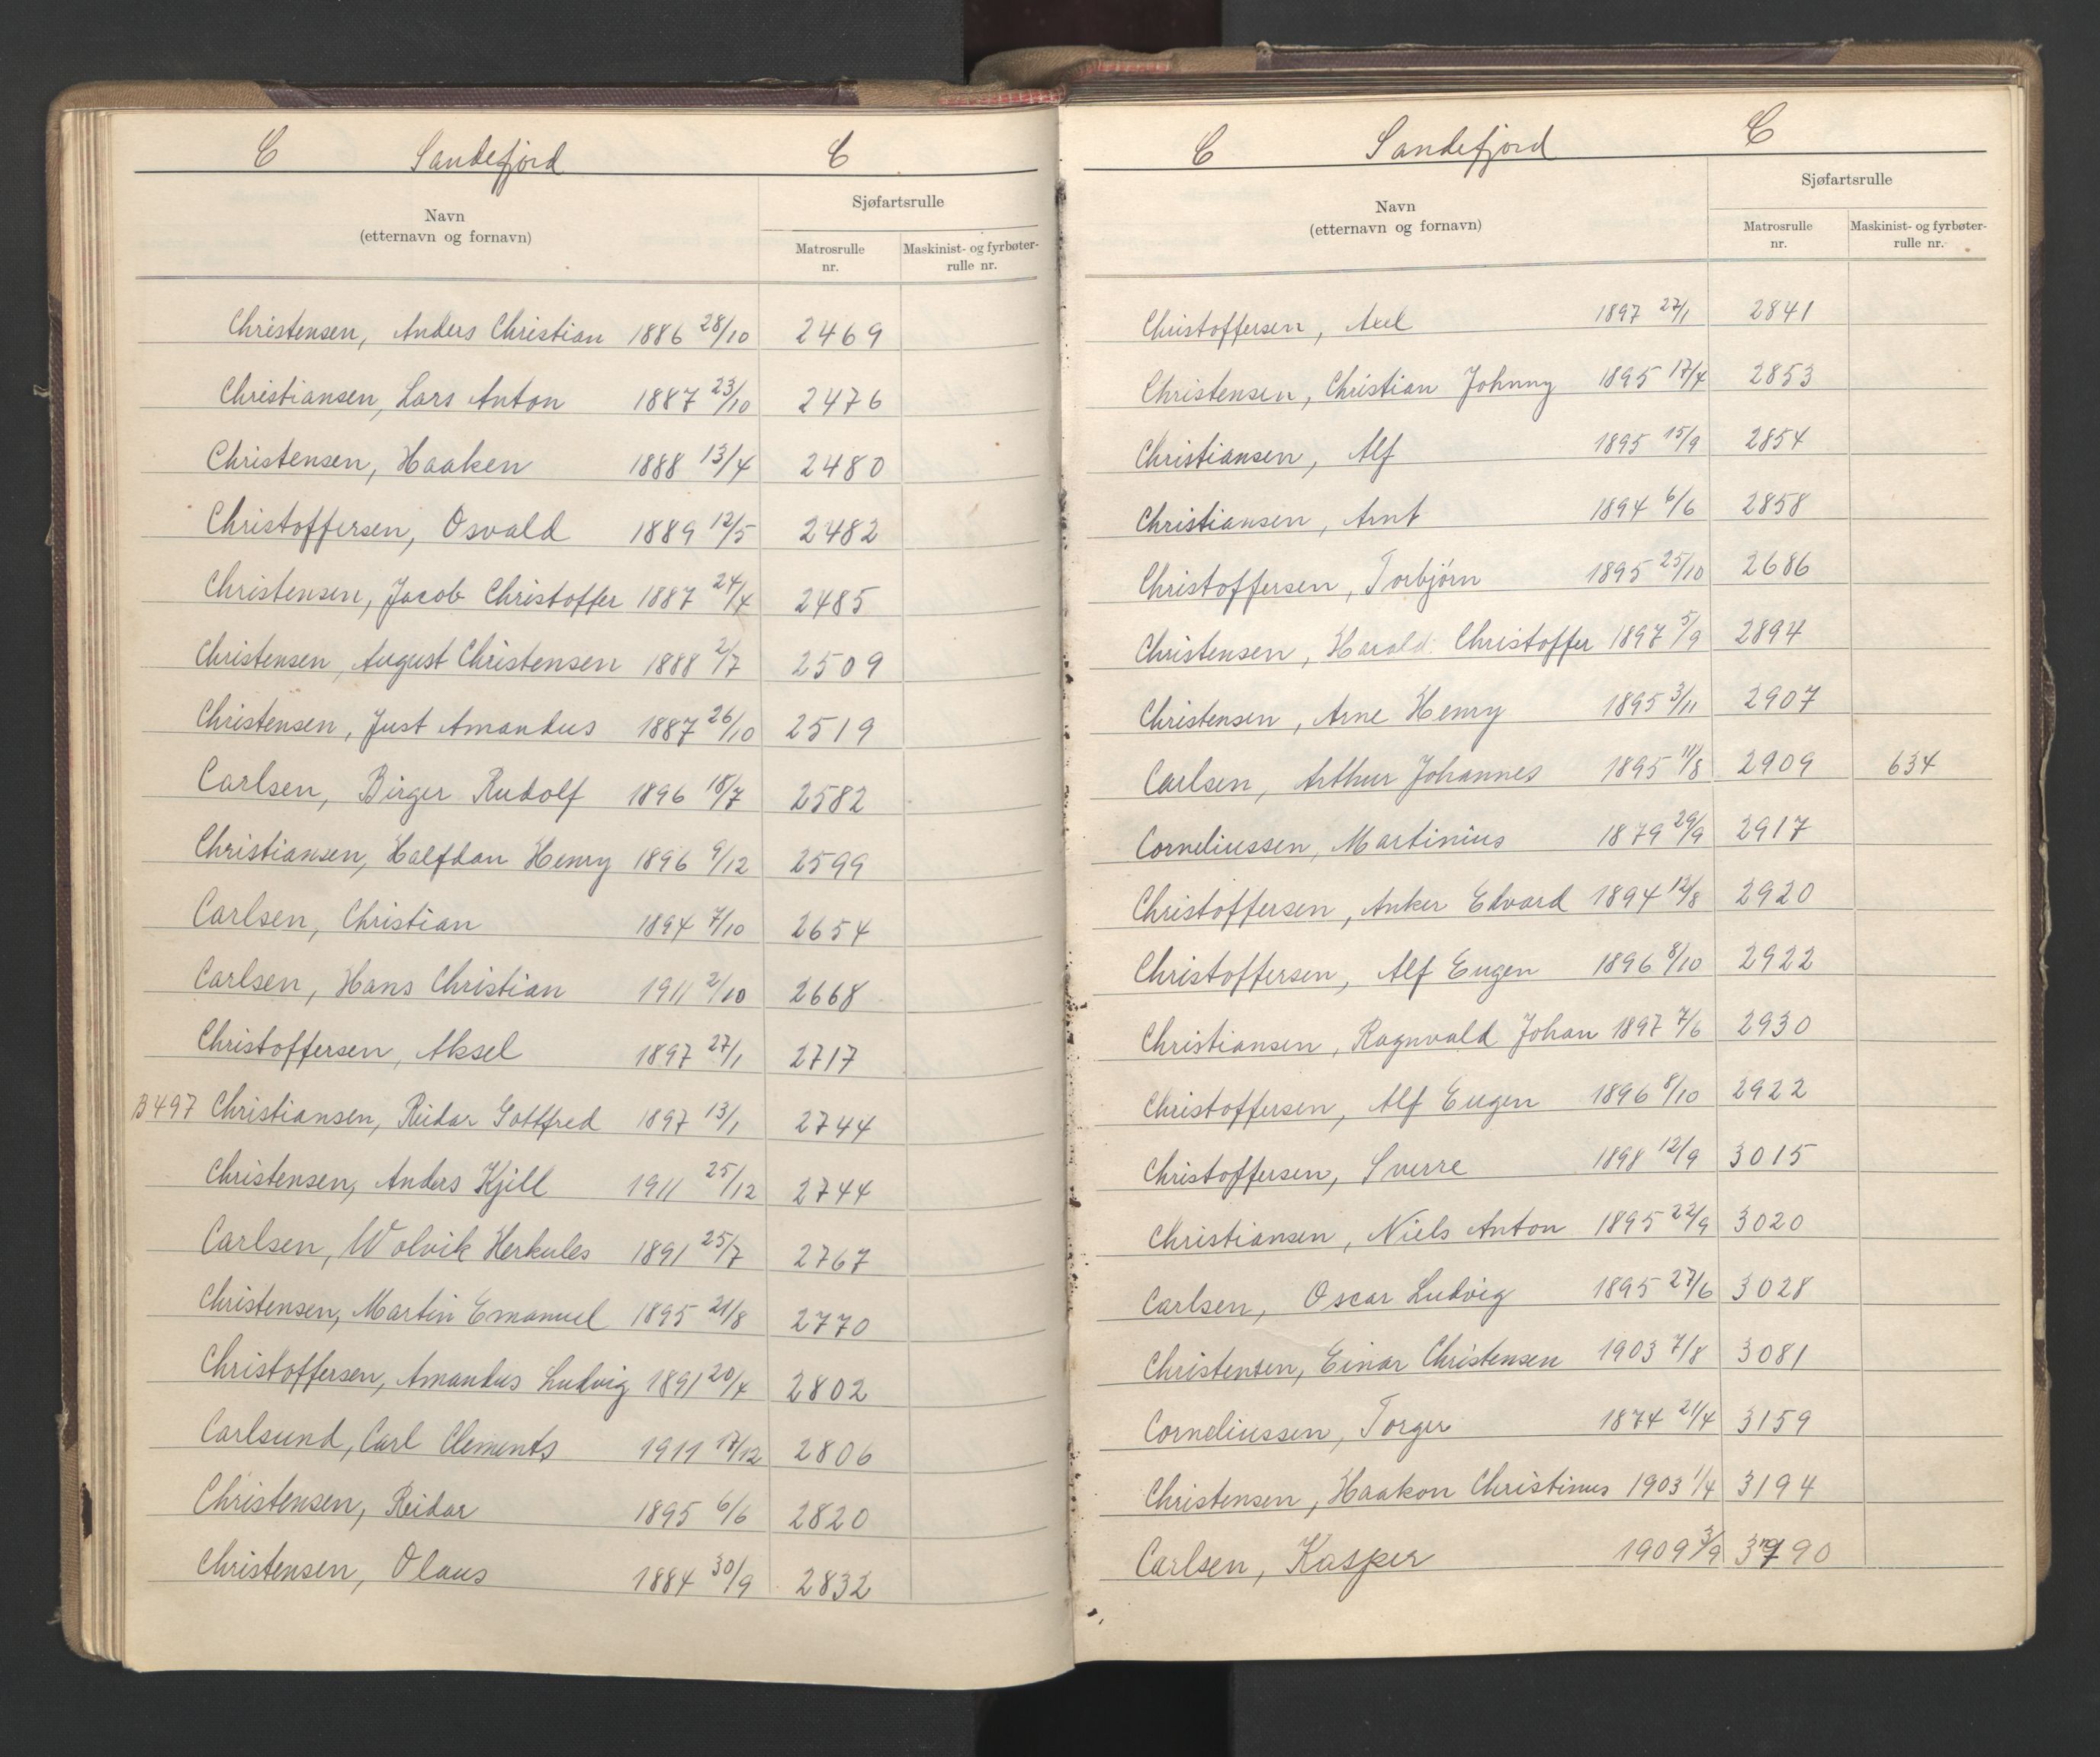 C Sandefjord C
Navn
(etternavn og fornavn)
Sjøfartsrulle
Matrosrulle nr.
Maskinist- og fyrbøter-rulle nr.
Christensen, Anders Christian 1886 28/10 2469
Christiansen, Lars Anton 1887 23/10 2476
Christensen, Haaken 1888 13/4 2480
Christoffersen, Osvald 1889 12/5 2482
Christensen, Jacob Christoffer 1887 24/4 2485
Christensen, August Christensen 1888 2/7 2509
Christensen, Just Amandus 1887 26/10 2519
Carlsen, Birger Rudolf 1896 18/7 2582
Christiansen, Halfdan Henry 1896 9/12 2599
Carlsen, Christian 1894 7/10 2654
Carlsen, Hans Christian 1911 2/10 2668
Christoffersen, Aksel 1897 27/1 2717
B497 Christiansen, Reidar Gottfred 1897 13/1 2744
Christensen, Anders Kjell 1911 25/12 2744
Carlsen, Wolvik Herkules 1891 25/7 2767
Christensen, Martin Emanuel 1895 21/8 2770
Christoffersen, Amandus Ludvig 1891 20/4 2802
Carlsund, Carl Clements 1911 17/12 2806
Christensen, Reidar 1895 6/6 2820
Christensen, Olaus 1884 30/9 2832
C Sandefjord C
Navn
(etternavn og fornavn)
Sjøfartsrulle
Matrosrulle nr.
Maskinist- og fyrbøter-rulle nr.
Christoffersen, Axel 1897 27/1 2841
Christensen, Christian Johnny 1895 17/4 2853
Christiansen, Alf 1895 15/9 2854
Christiansen, Arnt 1894 6/6 2858
Christoffersen, Torbjørn 1895 25/10 2686
Christensen, Harald Christoffer 1897 5/9 2894
Christensen, Arne Henry 1895 3/11 2907
Carlsen, Arthur Johannes 1895 11/8 2909 634
Corneliussen, Martinius 1879 29/9 2917
Christoffersen, Anker Edvard 1894 12/8 2920
Christoffersen, Alf Eugen 1896 8/10 2922
Christiansen, Ragnvald Johan 1897 7/6 2930
Christoffersen, Alf Eugen 1896 8/10 2922
Christoffersen, Sverre 1898 12/9 3015
Christiansen, Niels Anton 1895 22/9 3020
Carlsen, Oscar Ludvig 1895 27/6 3028
Christensen, Einar Christensen 1903 7/8 3081
Corneliussen, Torger 1874 21/4 3159
Christensen, Haakon Christinus 1903 1/4 3194
Carlsen, Kasper 1909 3/9